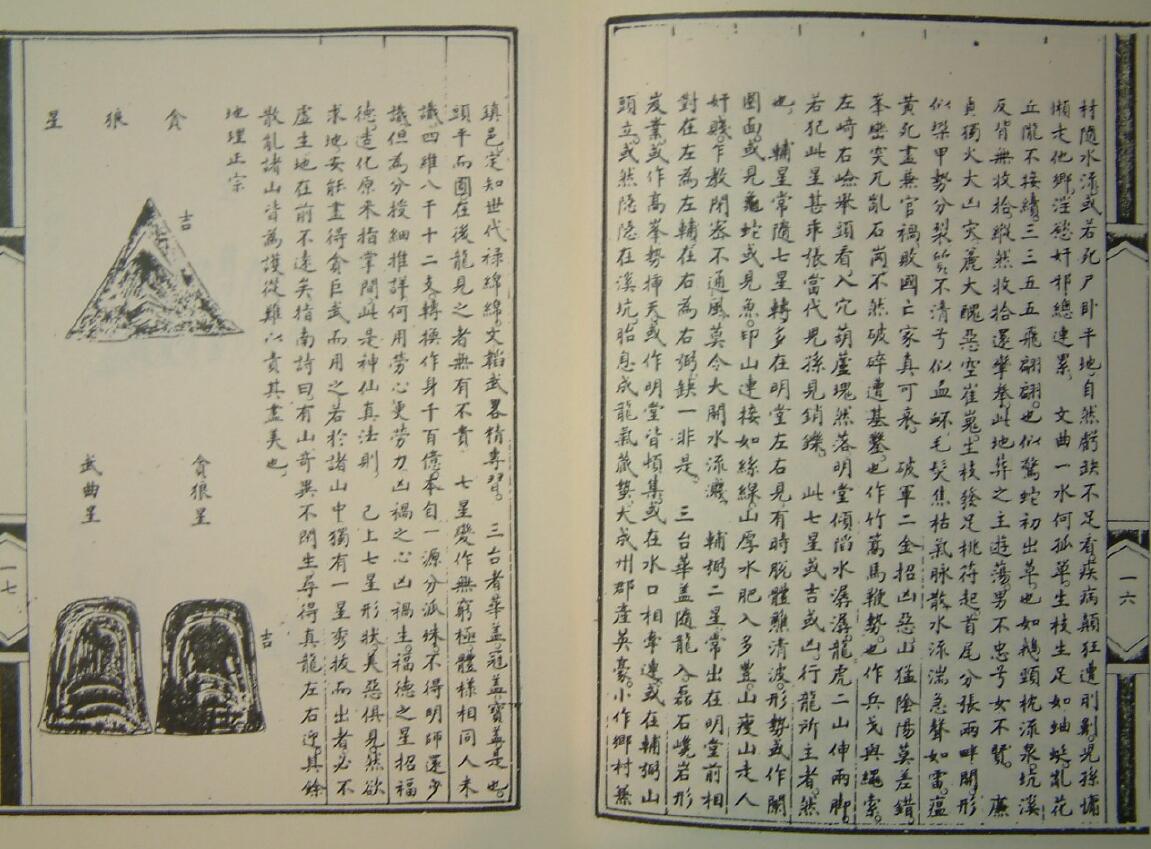 材隨水流或若死尸卧平地自然虧缺不足看疾病顛狂遭刖劓兒孫慵
懶走他鄉淫慾奸邪總連累　文曲一水何孤單生枝生足如蚰蜒亂花
丘隴不接續三三五五飛翩翩也似驚蛇初出草也如鵝頭枕流泉坑溪
反背無收拾縱然收拾還攣拳此地葬之主遊蕩男不忠兮女不賢　廉
貞獨火大山灾麄大醜惡空崔嵬生枝發足桃符起首尾分張兩畔開形
似梁甲勢分裂質不清兮似血衃毛髮焦枯氣脉散水流湍急聲如雷瘟
黄死盡無官禍敗國亡家真可哀　破軍二金招凶惡山猛陰陽莫差錯
峯巒突兀亂石崗不然破碎遭基鑿也作竹篙馬鞭勢也作兵戈與繩索
左﨑右嶮举頭看入穴葫蘆塊然落明堂傾陷水潺潺龍虎二山伸兩脚
若犯此星甚乖張當代兒孫見銷鑠　此七星或吉或凶行龍所主者然
也　輔星常隨七星轉多在明堂左右見有時脫體離清波形勢或作闌
圍面或見龜蛇或見魚印山連接如絲線山厚水肥入多豐山瘦山走人
奸賤乍教閉塞不通風莫令大開水流濺　輔弼二星常出在明堂前相
對在左為左輔在右為右弼缺一非是　三台華盖隨龍入磊石巉岩形
岌業或作高峯勢揷天或作明堂皆頓集或在水口相牽連或在輔弼山
頭立或然隐隐在溪坑胎息成龍氣藏蟄大成州郡產英豪小作鄉村兼
一六
鎮邑定知世代禄綿綿文韜武畧精專習　三台者華盖冠盖寶盖是也
頭平而圓在後龍見之者無有不貴　七星變作無窮極體樣相同人未
識四維八干十二支轉換作身千百億本自一源分派殊不得明師還少
識但為分授細推詳何用勞心更劳力凶禍之心凶禍生福德之星招福
德造化原来指掌間此是神仙真法則　已上七星形狀美惡俱見然欲
求地安能盡得貪巨武而用之若於諸山中獨有一星秀拔而出者必不
虚生地在前不遠矣指南詩曰有山奇異不閒生尋得真龍左右迎其餘
散亂諸山皆為護從難以責其盡美也
地理正宗
貪狼星
吉
貪狼星
武曲星
吉
一七